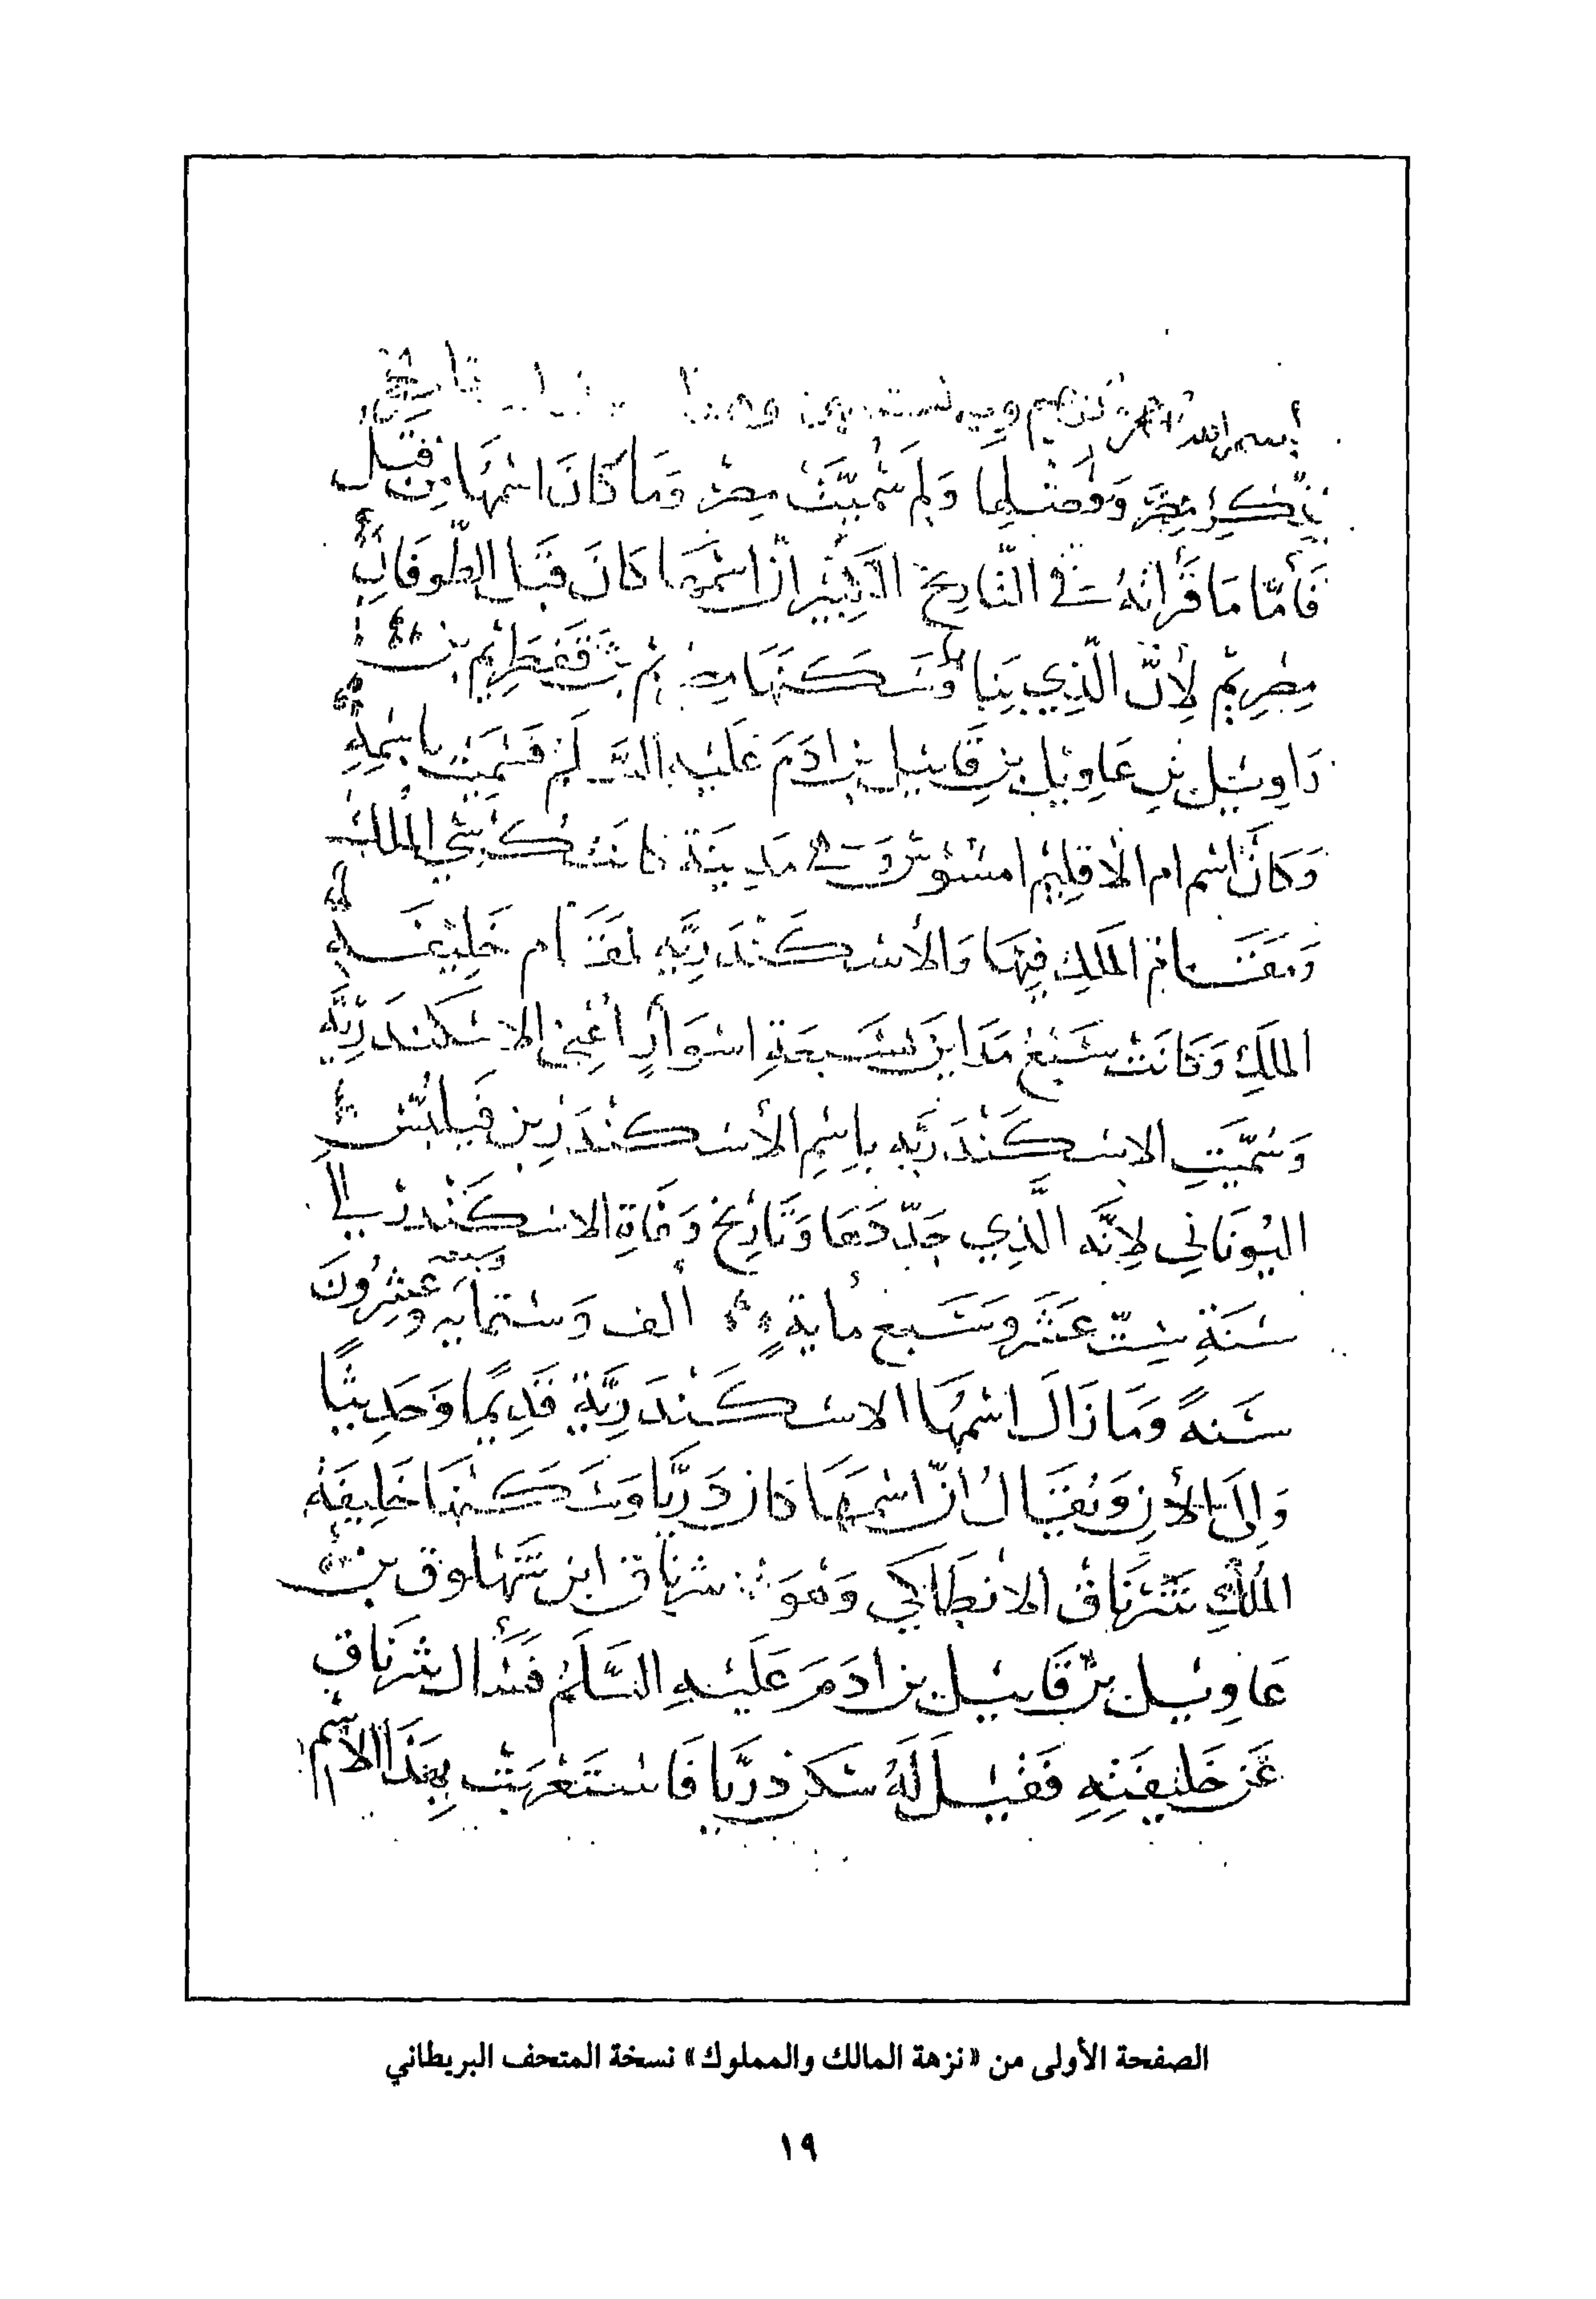 بسم الله الرحمن الرحيم وبه نستعين وهذا تاريخ
بذكر مصر وفضلها ولم سُمّيَتْ مصر وَمَا كانَ اسْمُهَا مِن قبل
فَأمّا مَا قَرأتهُ في التّاريخ الكبير انّ اسْمَهَا كانَ قبَل الطّوفَانِ
مِصْرِيْم لِأنّ الّذِي بَنَاهَا وَسَكَنَهَا بن نقطريم بن
دَاوِيل بن عَاوِيْل بن قَابيل بن ادَمَ عَليْهِ السَّلم فسُمِّيَت باسْمِهِ
وَكانَ اسْم ام الاقلِيْم امسُوسْ وَهى مَدِينة كانت كرسي الملك
وَمقَام الملكِ فِيهَا وَالأسْكَنْدَرِيَّه مقَام خَلِيْفَة
الملكِ وَكَانَتْ سَبْعُ مَدَاين بسَبعَةِ اسْوَارٍ اعْنِي الاسْكنْدَرِيَّه
وَسُمّيَتِ الاسْكَنْدَرِيَّه بِاسْمِ الأسْكنْدَر بن فيلبس
اليُونَانِي لِانّه الّذِي جَدّدَهَا وَتَارِيْخ وَفَاةِ الاسْكَنْدَر الى
سَنَةِ سِتّ عَشَر وسَبع مأية الف وَستمايه وسبعه وعِشرُونَ
سَنةً وَمَا زَالَ اسْمُهَا الاسْكَنْدَرِيَّة قَدِيْمًا وَحَدِيثًا
وَإِلَى الأن وَيُقَالُ انّ اسْمَهَا كان دَرْيَّا وَسَكَنهَا خَلِيفَة
المَلكِ شَرْنَاق الانْطَاكي وَهْوَ شرناق ابن شَهلوق بن
عَاوِيْل بن قَابيْل بن ادَمَ عَلَيْهِ السَّلَمُ فَسَأل شَرْنَاق
عَن خَلِيفَتِهِ فَقيْلَ لَهُ سَكن دَرْيَّا فَاسْتَعْربَتْ بهَذَا الاسْم
الصفحة الأولى من «نزهة المالك والمملوك» نسخة المتحف البريطاني
١٩